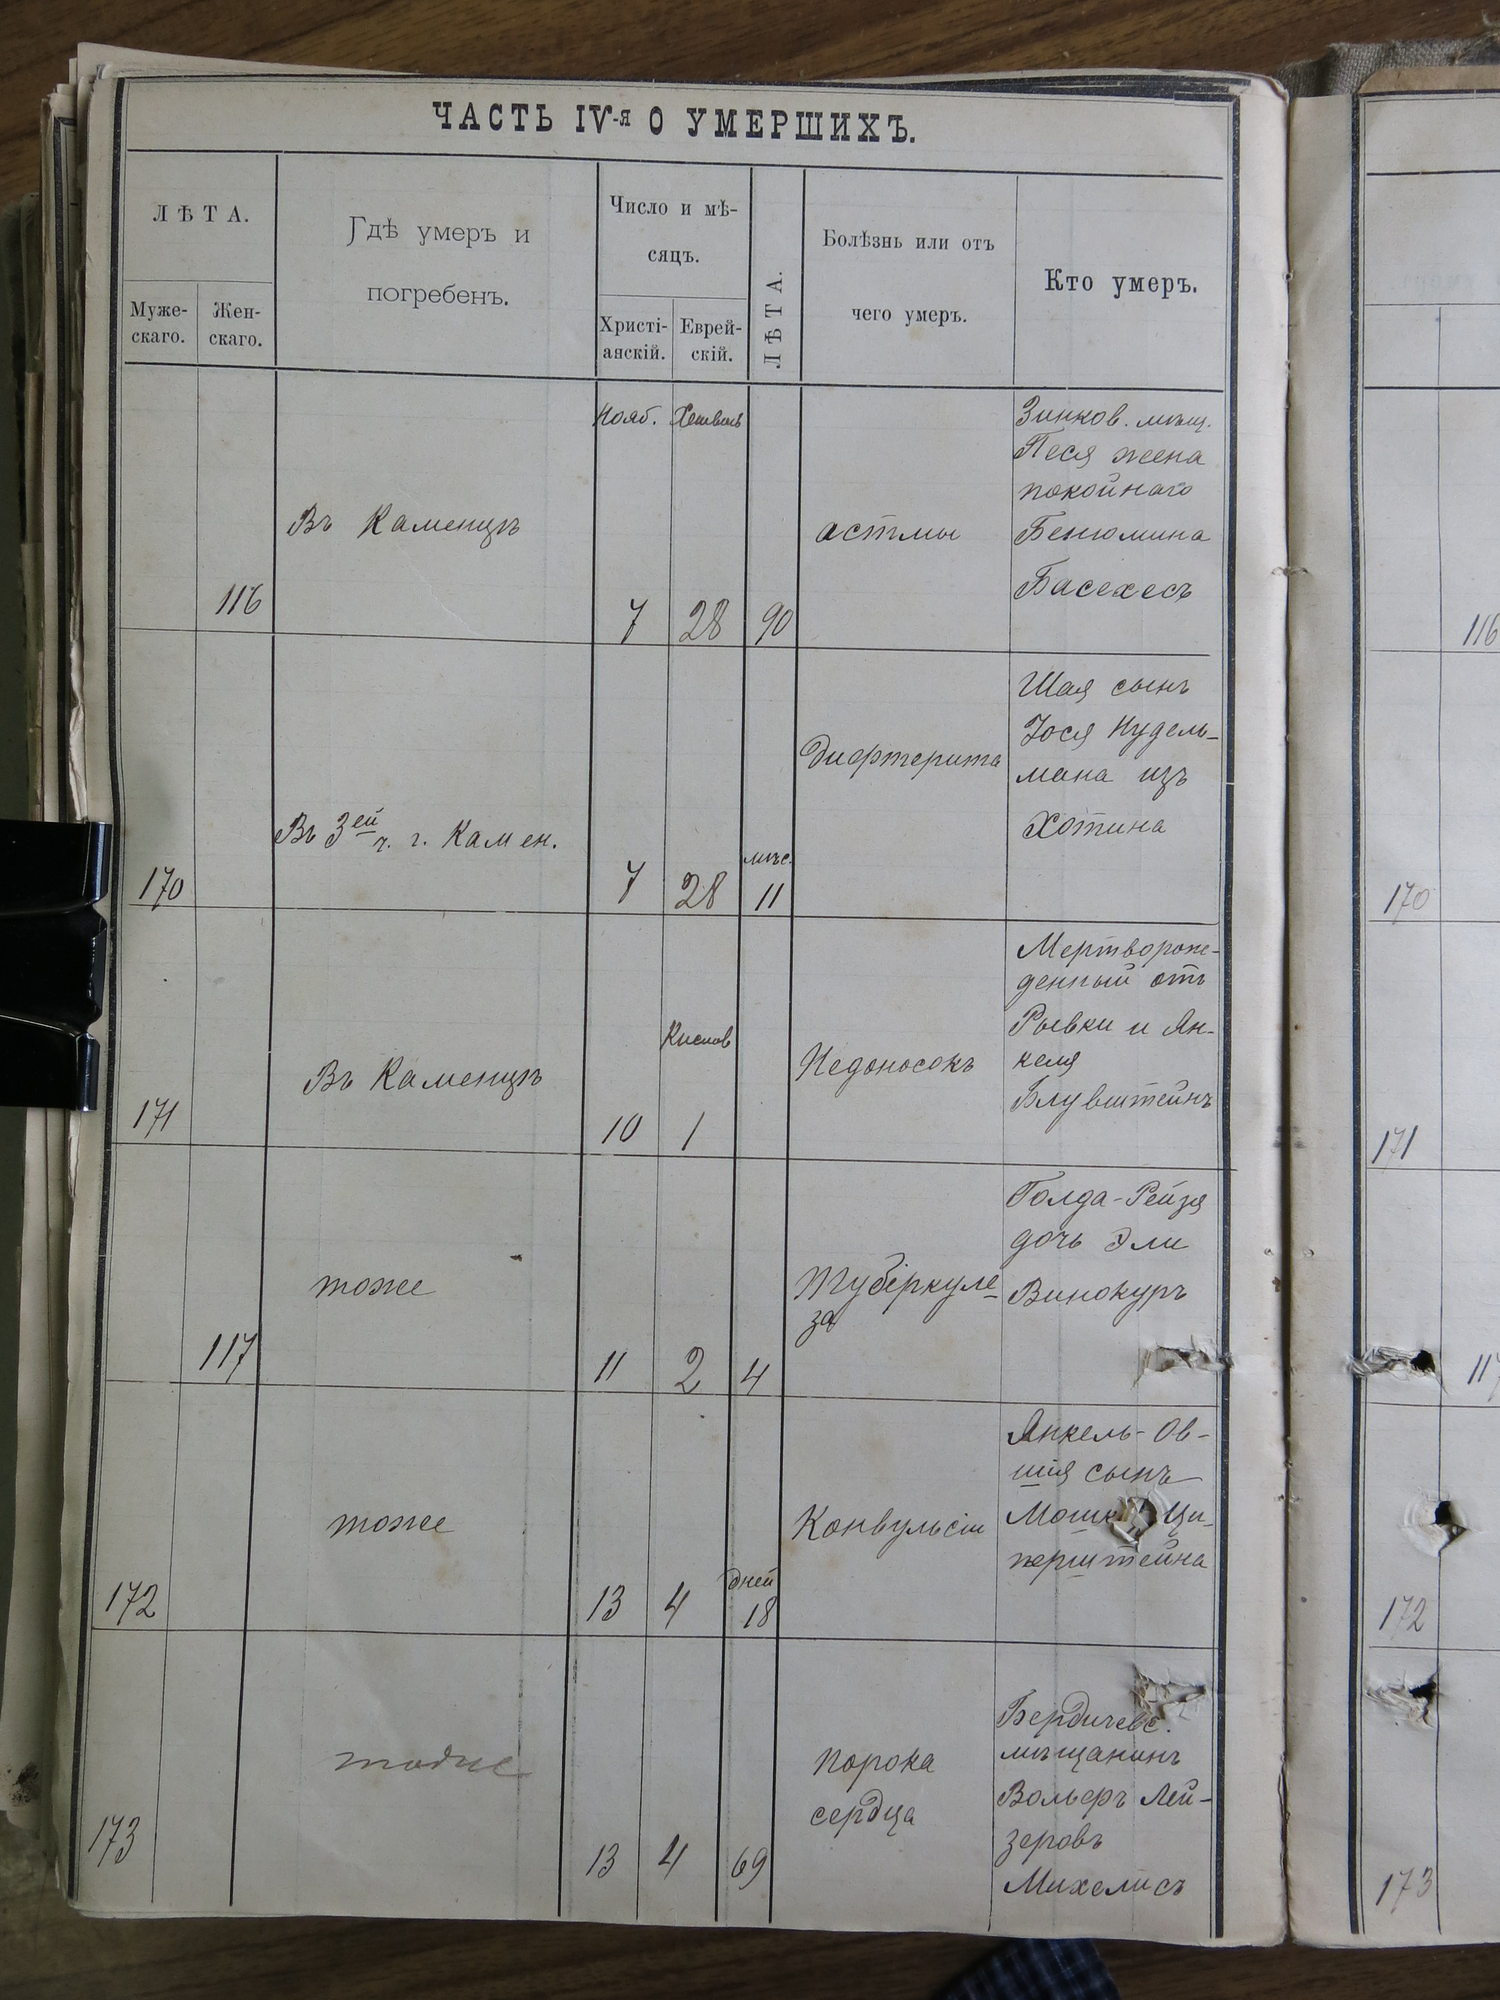 ЧАСТЬ IV-я О УМЕРШИХЪ.
ЛѢТА.
Муже-
скаго.
Жен-
скаго.
Гдѣ умеръ и
погребенъ.
Число и мѣ-
сяцъ.
Христі-
анскій.
Еврей-
скій.
ЛѢТА.
Болѣзнь или отъ
чего умеръ.
Кто умеръ.
116
Въ Каменцѣ
Нояб.
7
28
90
астмы
Зинков. мѣщ.
Песя жена
покойнаго
Бенюмина
Басехесъ
170
Въ 3ей ч. г. Камен.
7
28
мѣс.
11
Дифтерита
Шая сынъ
Іося Нудель-
мана изъ
Хотина
171
Въ Каменцѣ
10
Кислев
1
Недоносокъ
Мертворож-
денный отъ
Рывки и Ян-
келя
Блувштейнъ
117
тоже
11
2
4
Туберкуле-
за
Голда-Рейзя
дочь Эли
Винокуръ
172
тоже
13
4
дней
18
Конвульсіи
Янкель-Ов-
шія сынъ
Ци-
перштейна
173
тоже
13
4
69
порока
сердца
Бердичевс.
мѣщанинъ
Вольфъ Лей-
зеровъ
Михелисъ
116
170
171
117
172
173